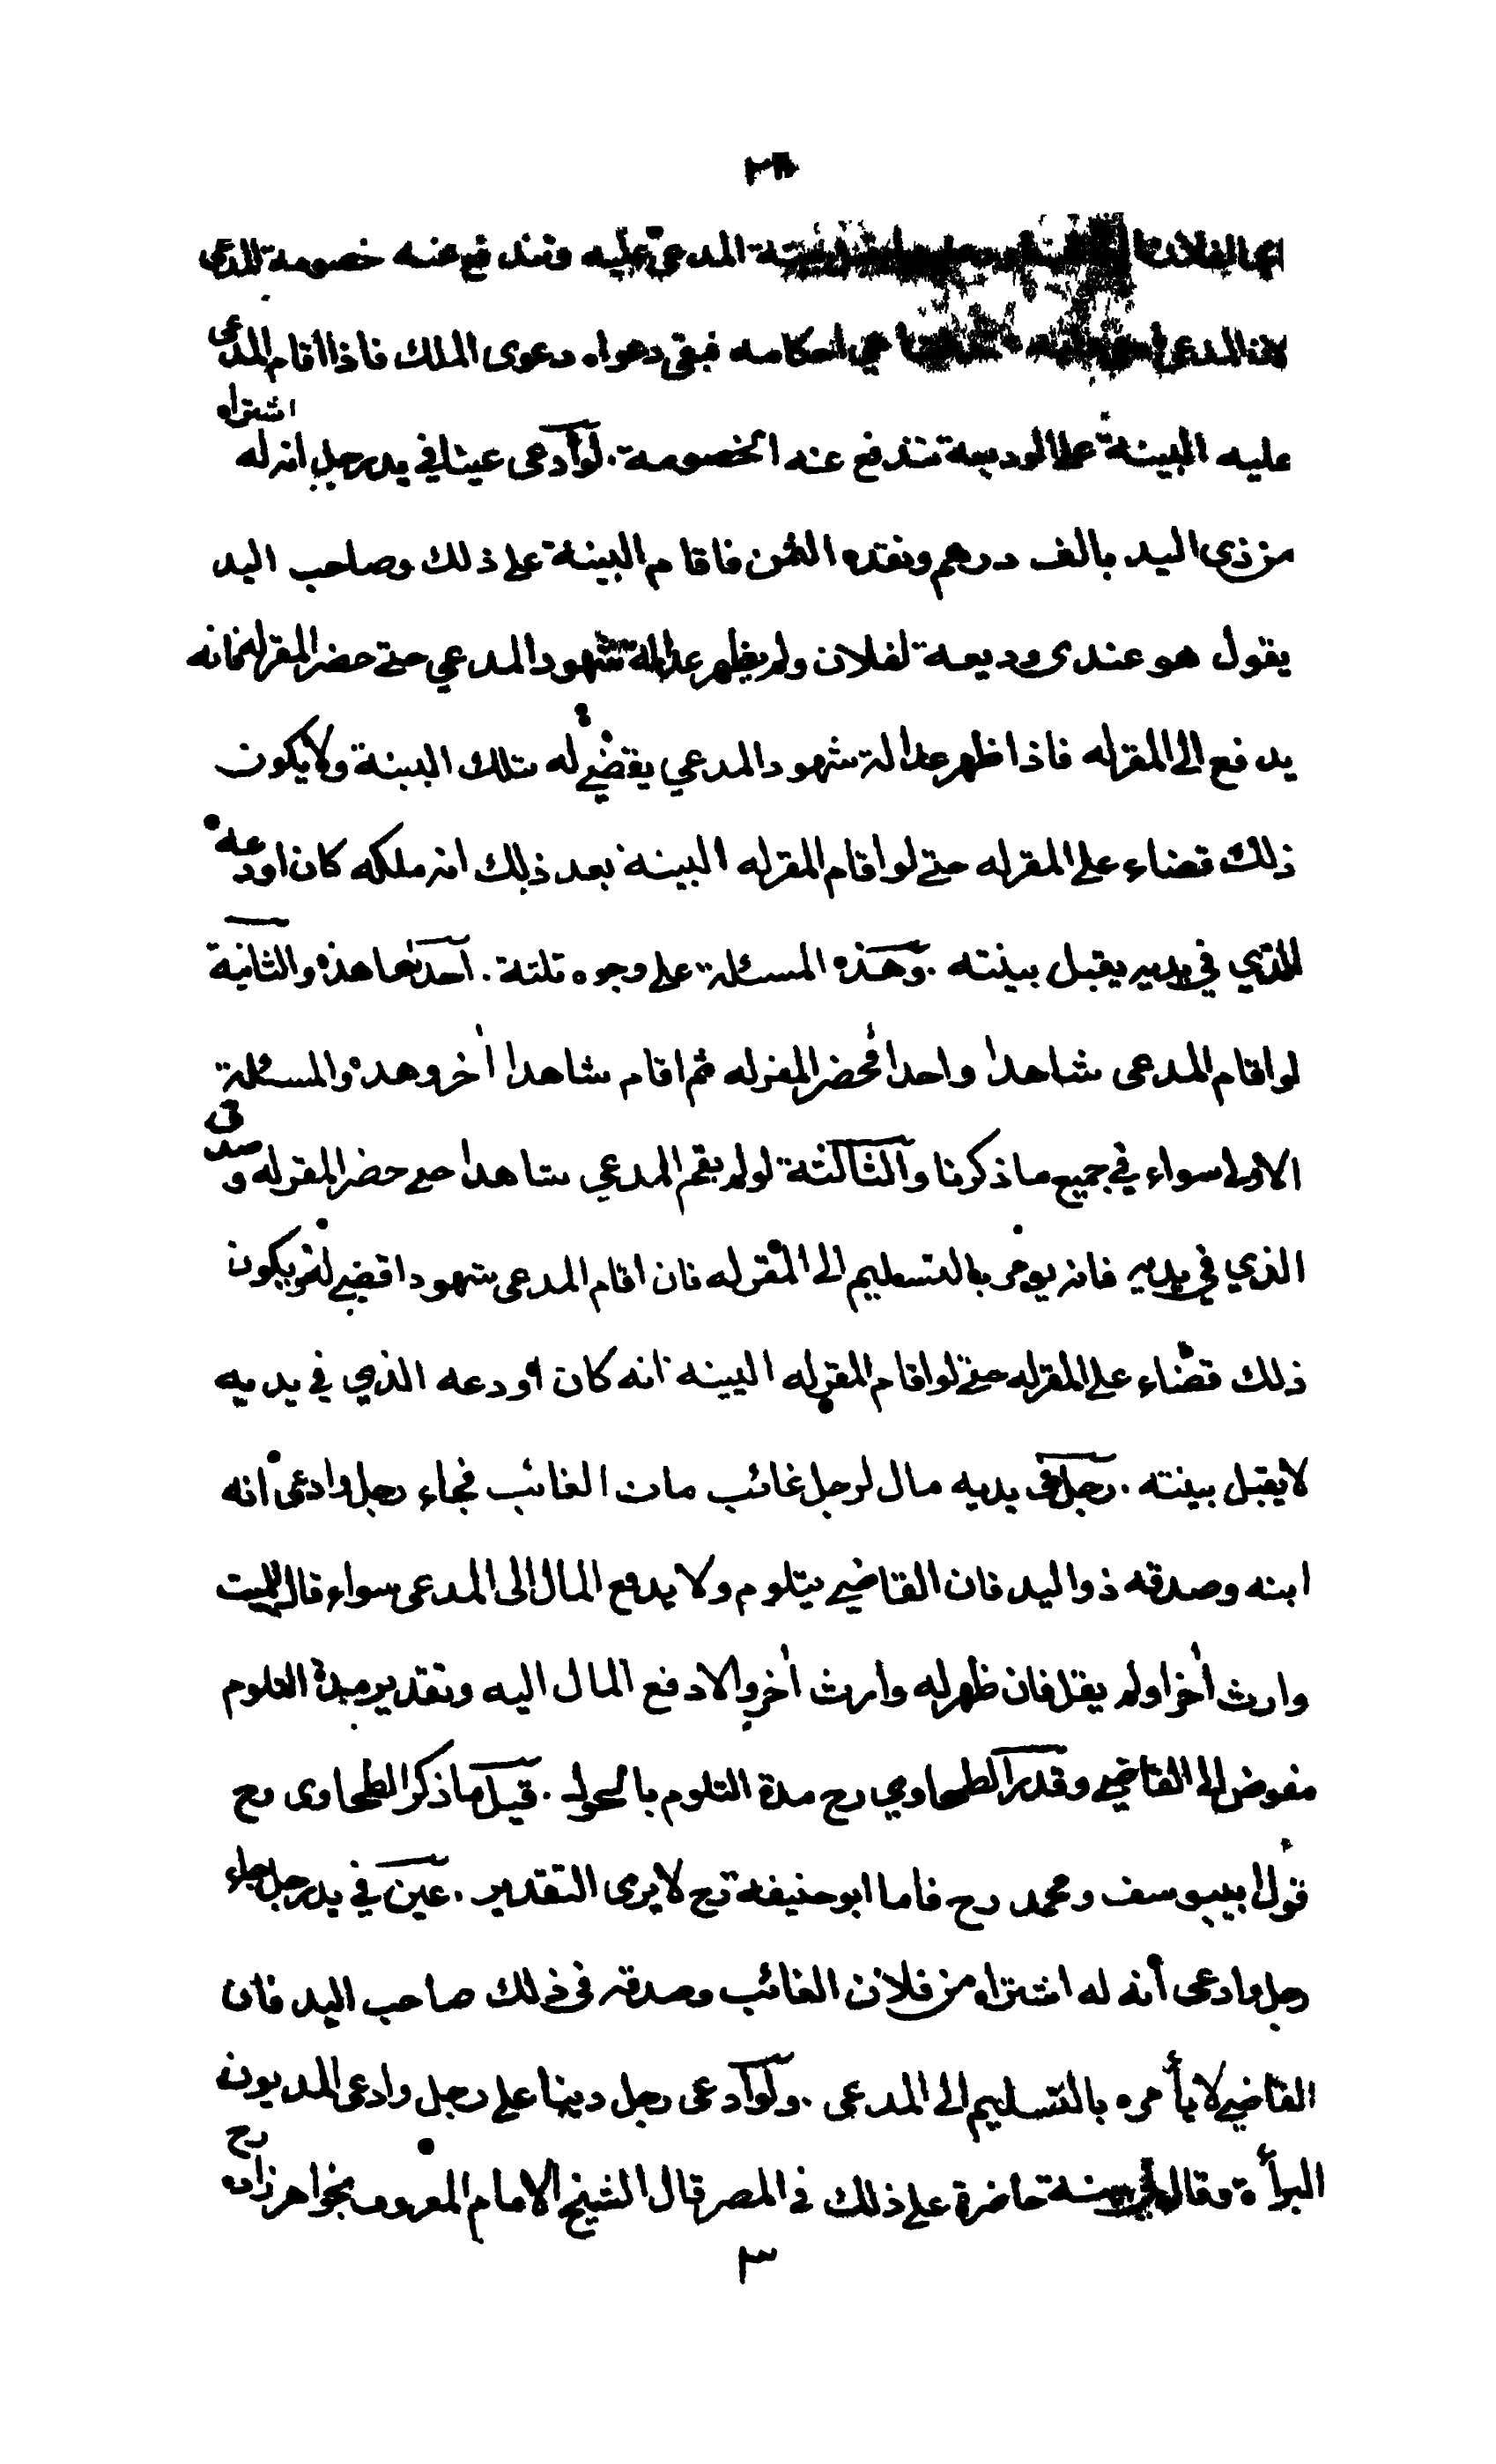 المدعى عليه فتندفع عنه خصومة المدعى
لان المدعى احكامه فبقى دعواه دعوى الملك فاذا اقام المدعى
عليه البينة على الوديعة تندفع عنه الخصومة . لو ادعى عينا في يد رجل انه له اشتراه
من ذى اليد بالف درهم ونقده الثمن فاقام البينة على ذلك وصاحب اليد
يقول هو عندى وديعة لفلان ولم يظهر عدالة شهود المدعي حتى حضر المقر له فانه
يدفع الى المقر له فاذا ظهر عدالة شهود المدعي يقضي له بتلك البينة ولا يكون
ذلك قضاء على المقر له حتى لو اقام المقر له البينة بعد ذلك انه ملكه كان اودعه
الذي في يديه يقبل بينته . وهذه المسئلة على وجوه ثلثة . احدها هذه والثانية
لو اقام المدعى شاهدا واحدا فحضر المقر له ثم اقام شاهدا اخر وهذه والمسئلة
الاولى سواء في جميع ما ذكرنا والثالثة لو لم يقم المدعي شاهدا حتى حضر المقر له وصدق
الذي في يديه فانه يومر بالتسليم الى المقر له فان اقام المدعى شهودا قضي له ويكون
ذلك قضاء على المقر له حتى لو اقام المقر له البينة انه كان اودعه الذي في يديه
لا يقبل بينته . رجل في يديه مال لرجل غائب مات الغائب فجاء رجل وادعى انه
ابنه وصدقه ذو اليد فان القاضي يتلوم ولا يدفع المال الى المدعى سواء قال للميت
وارث اخر او لم يقل فان ظهر له وارث اخر والا دفع المال اليه وتقدير مدة التلوم
مفوض الى القاضي وقدر الطحاوي رح مدة التلوم بالحول . قيل ما ذكر الطحاوى رح
قول ابي يوسف ومحمد رح فاما ابو حنيفة رح لا يرى التقدير . عين في يد رجل جاء
رجل وادعى أنه له اشتراه من فلان الغائب وصدقه فى ذلك صاحب اليد فان
القاضي لا يأمره بالتسليم الى المدعى . ولو ادعى رجل دينا على رجل وادعى المديون
البرأة وقال لي بينة حاضرة على ذلك في المصر قال الشيخ الامام المعروف بخواهر زاده رح
٣